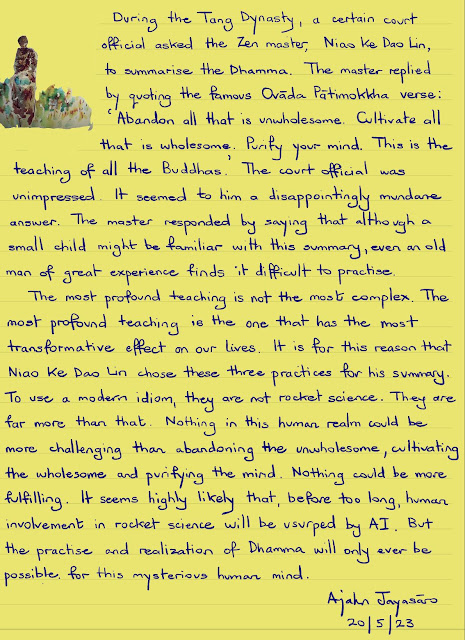 During the Tang Dynasty, a certain court
official asked the Zen master, Niao Ke Dao Lin,
to summarise the Dhamma. The master replied
by quoting the famous Ovāda Pāṭimokkha verse:
'Abandon all that is unwholesome. Cultivate all
that is wholesome. Purify your mind. This is the
teaching of all the Buddhas.' The court official was
unimpressed. It seemed to him a disappointingly mundane
answer. The master responded by saying that although a
small child might be familiar with this summary, even an old
man of great experience finds it difficult to practise.
The most profound teaching is not the most complex. The
most profound teaching is the one that has the most
transformative effect on our lives. It is for this reason that
Niao Ke Dao Lin chose these three practices for his summary.
To use a modern idiom, they are not rocket science. They are
far more than that. Nothing in this human realm could be
more challenging than abandoning the unwholesome, cultivating
the wholesome and purifying the mind. Nothing could be more
fulfilling. It seems highly likely that, before too long, human
involvement in rocket science will be usurped by AI. But
the practise and realization of Dhamma will only ever be
possible for this mysterious human mind.
Ajahn Jayasāro
20/5/23